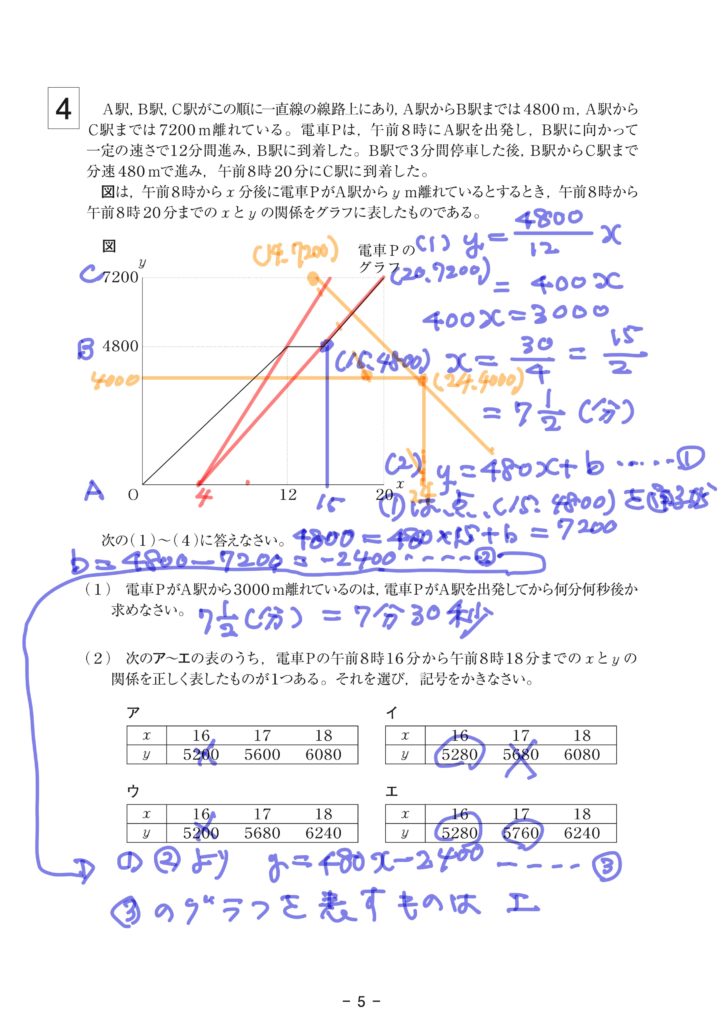 4
A駅，B駅，C駅がこの順に一直線の線路上にあり，A駅からB駅までは4800m，A駅から
C駅までは7200m離れている。電車Pは，午前8時にA駅を出発し，B駅に向かって
一定の速さで12分間進み，B駅に到着した。B駅で3分間停車した後，B駅からC駅まで
分速480mで進み，午前8時20分にC駅に到着した。
図は，午前8時からx分後に電車PがA駅からy m離れているとするとき，午前8時から
午前8時20分までのxとyの関係をグラフに表したものである。
図
y
電車Pの
グラフ
(1) y = 4800/12 x
(14.7200)
C 7200
(20.7200)
= 400x
400x = 3000
B 4800
(15.4800)
x = 30/4 = 15/2
4000
(24.4000)
= 7 1/2 (分)
(2) y = 480x + b ……①
A O 4 12 15 20 24 x
(1)は、点、(15.4800)を通るから
次の(1)～(4)に答えなさい。
4800 = 480×15+b = 7200
b = 4800 - 7200 = -2400 ……②
(1) 電車PがA駅から3000m離れているのは，電車PがA駅を出発してから何分何秒後か
求めなさい。
7 1/2 (分) = 7分30秒
(2) 次のア～エの表のうち，電車Pの午前8時16分から午前8時18分までのxとyの
関係を正しく表したものが1つある。それを選び，記号をかきなさい。
ア
x 16 17 18
y 5200 5600 6080
イ
x 16 17 18
y 5280 5680 6080
ウ
x 16 17 18
y 5200 5680 6240
エ
x 16 17 18
y 5280 5760 6240
① ②より y = 480x - 2400 ……③
③のグラフを表すものは エ
- 5 -